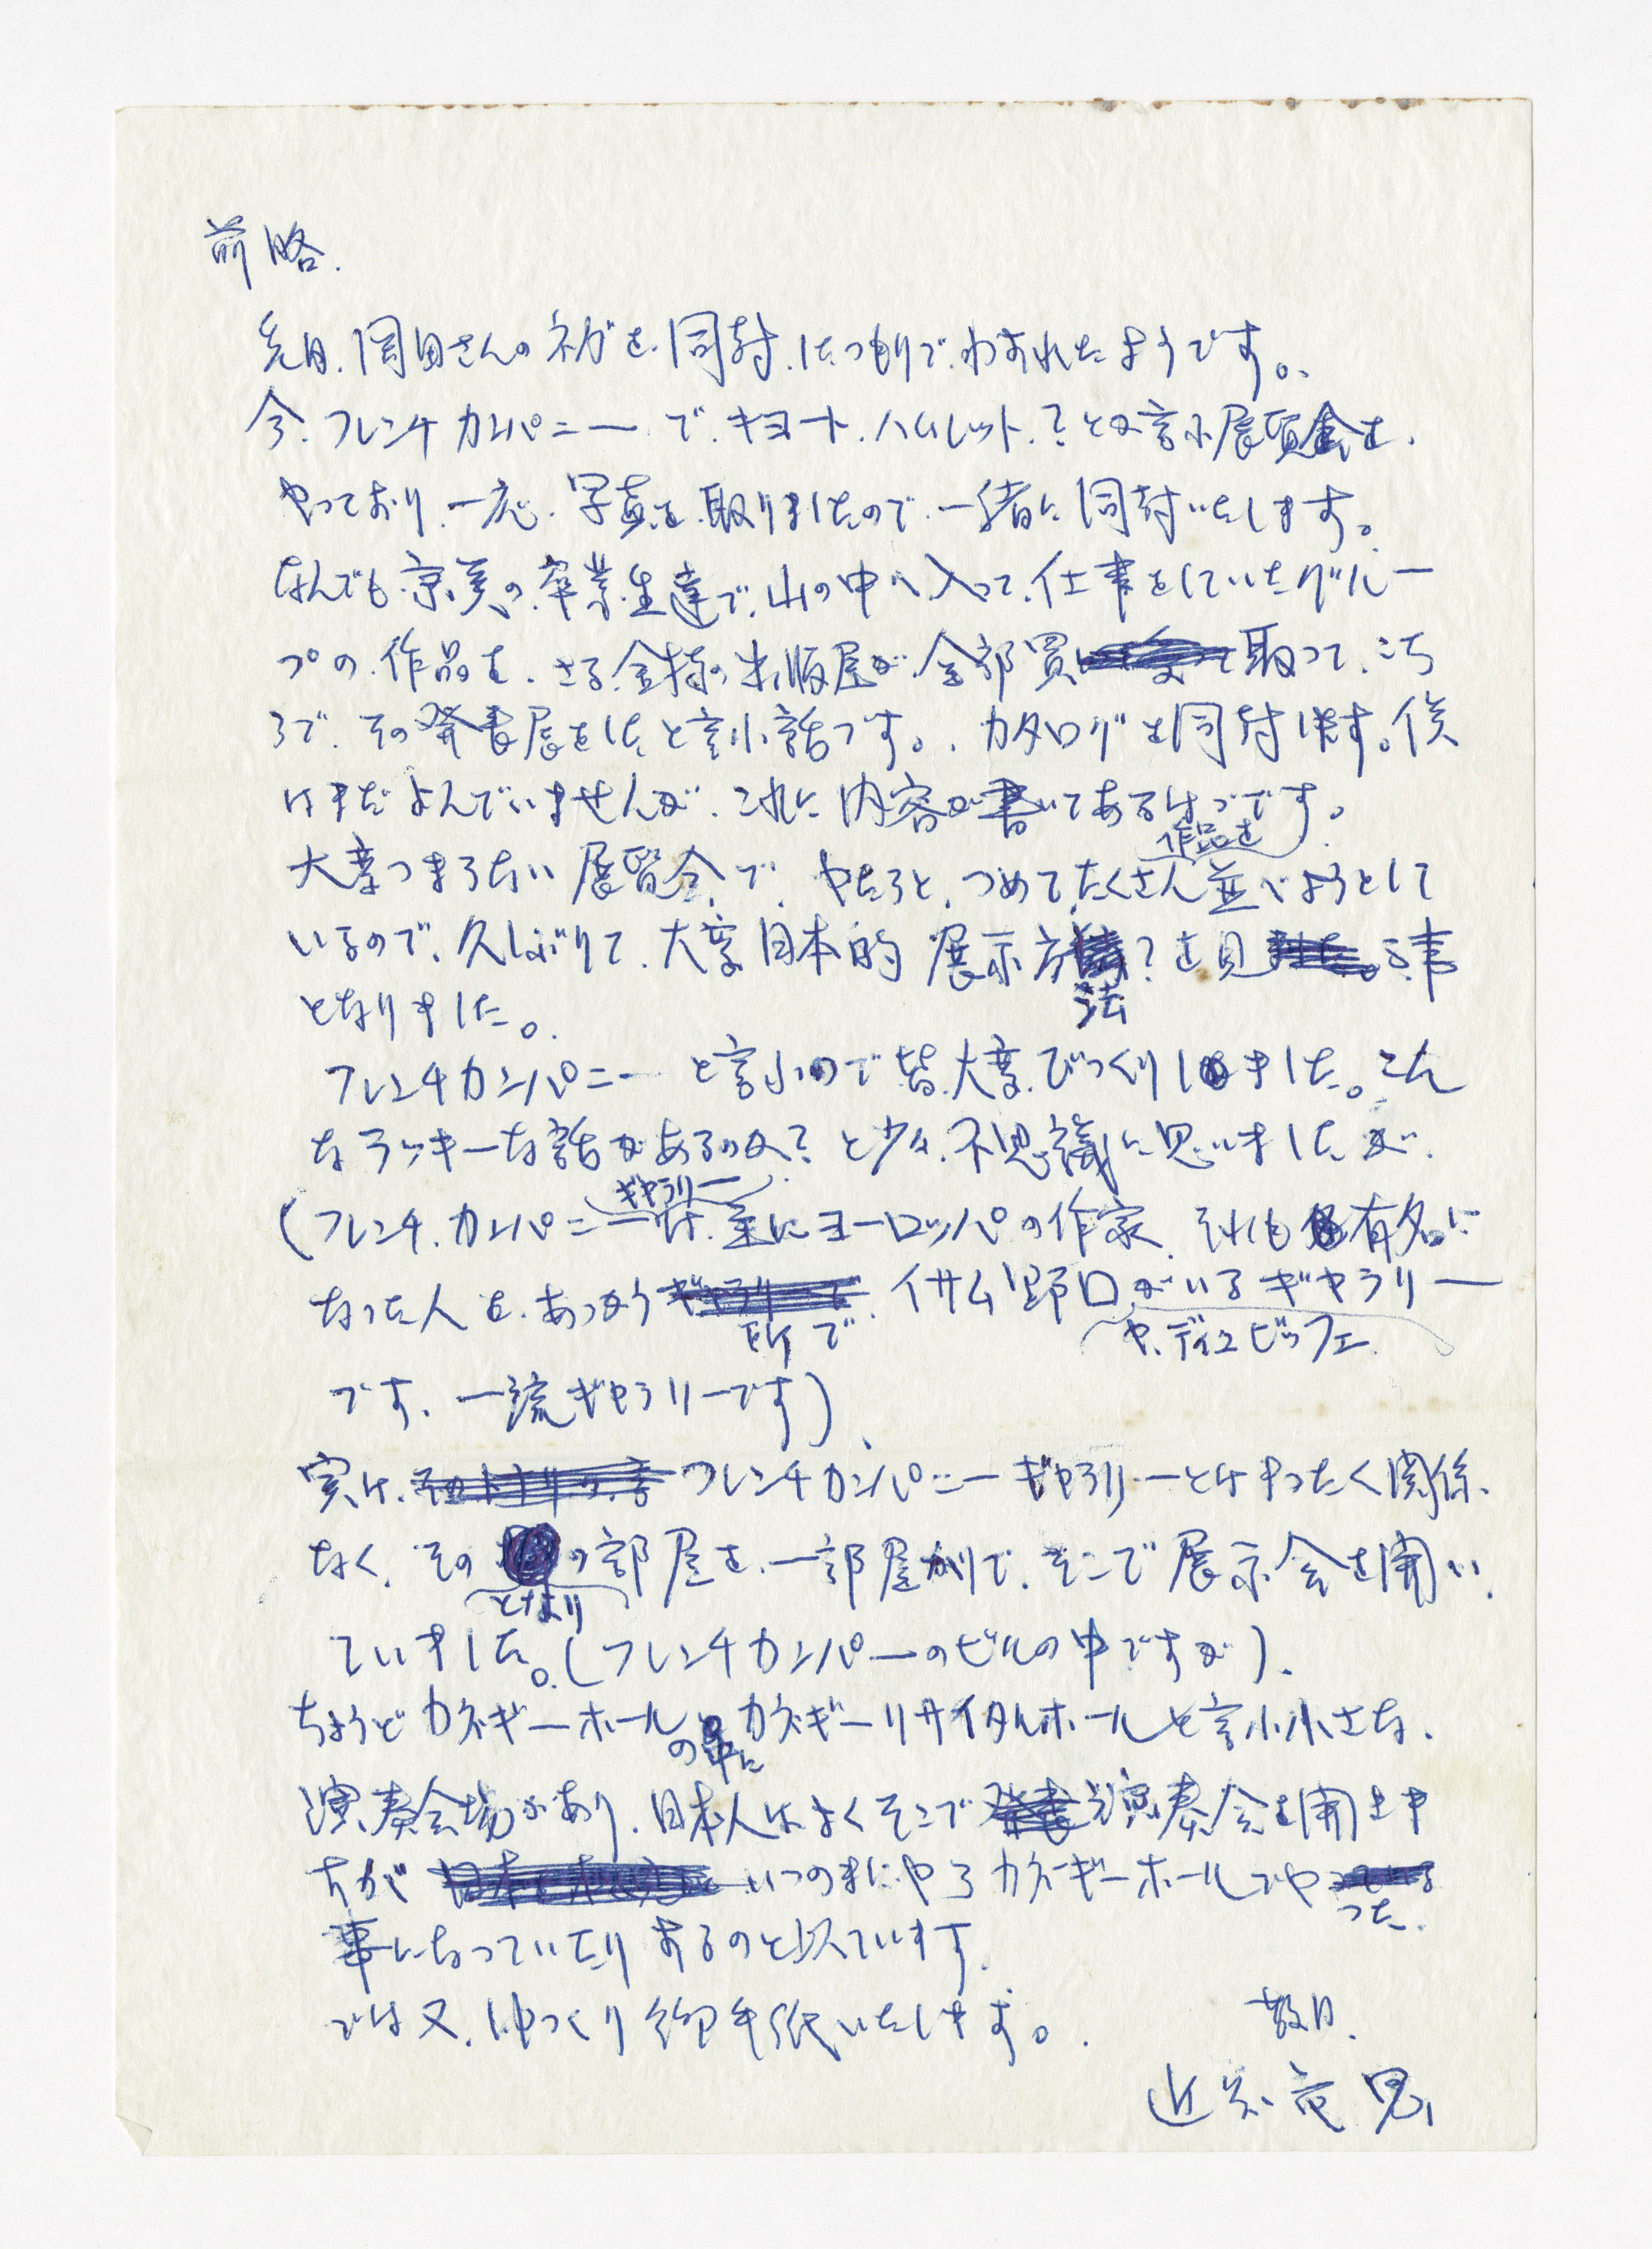 前略.
先日.岡田さんのネガを.同封.したつもりで.わすれたようです。
今.フレンチカンパニーで.キヨート.ハムレット.?とか言ふ展覧会を.
やっており.一応.写真を.取りましたので.一緒に同封いたします。
なんでも京美の.卒業生達で.山の中へ入って.仕事をしていたグルー
プの.作品を.さる.金持の出版屋が.全部買取って.こち
らで.その発表展をしたと言ふ話です。カタログを同封します。僕
はまだよんでいませんが.これに内容が書いてあるはづです。
大変つまらない展覧会で.やたらと.つめて.作品をたくさん並べようとして
いるので.久しぶりで.大変日本的展示方法?を見る事
となりました。
フレンチカンパニーと言ふので皆.大変.びっくりしました。こん
なラッキーな話があるのか?と少々.不思議に思いましたが.
(フレンチ.カンパニーギャラリーは.主にヨーロッパの作家.それも有名に
なった人を.あつかう所で.イサム野口や.ディユビッフェがいるギャラリー
です.一流ギャラリーです)
実は.フレンチカンパニーギャラリーとはまったく関係.
なく.そのとなりの部屋を.一部屋かりて.そこで展示会を開い
ていました。(フレンチカンパーのビルの中ですが).
ちょうどカネギーホールの中にカネギーリサイタルホールと言ふ小さな.
演奏会場があり.日本人はよくそこで演奏会を開きま
すが いつのまにやらカネギーホールでやった.
事になっていたりするのと似ています.
では又.ゆっくり御手紙いたします。 敬具.
近藤竜男